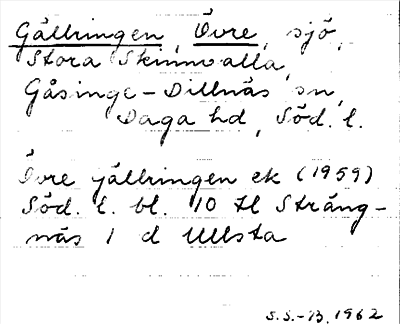 Gällringen, Övre, sjö,
Stora Skinnvalla,
Gåsinge-Dillnäs sn,
Daga hd, Söd. l.
Övre gällringen ek (1959)
Söd. l. bl. 10 tl Sträng-
näs 1 d Ullsta
S.S.-B. 1962